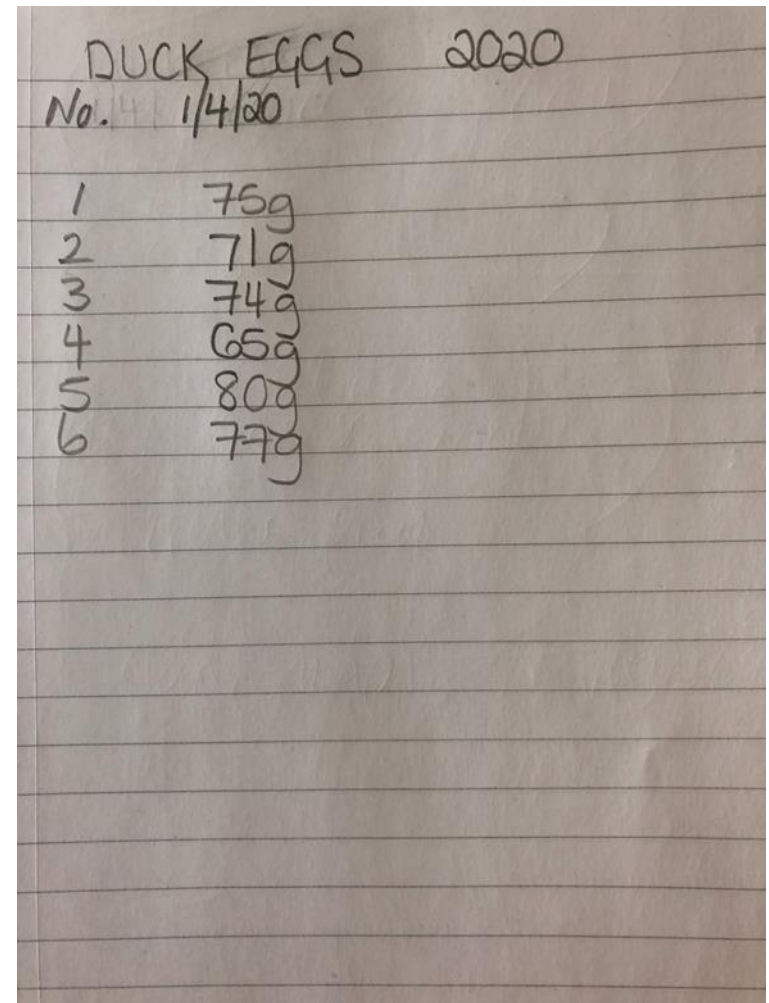 DUCK EGGS 2020
No. 1/4/20
1 75g
2 71g
3 74g
4 65g
5 80g
6 77g